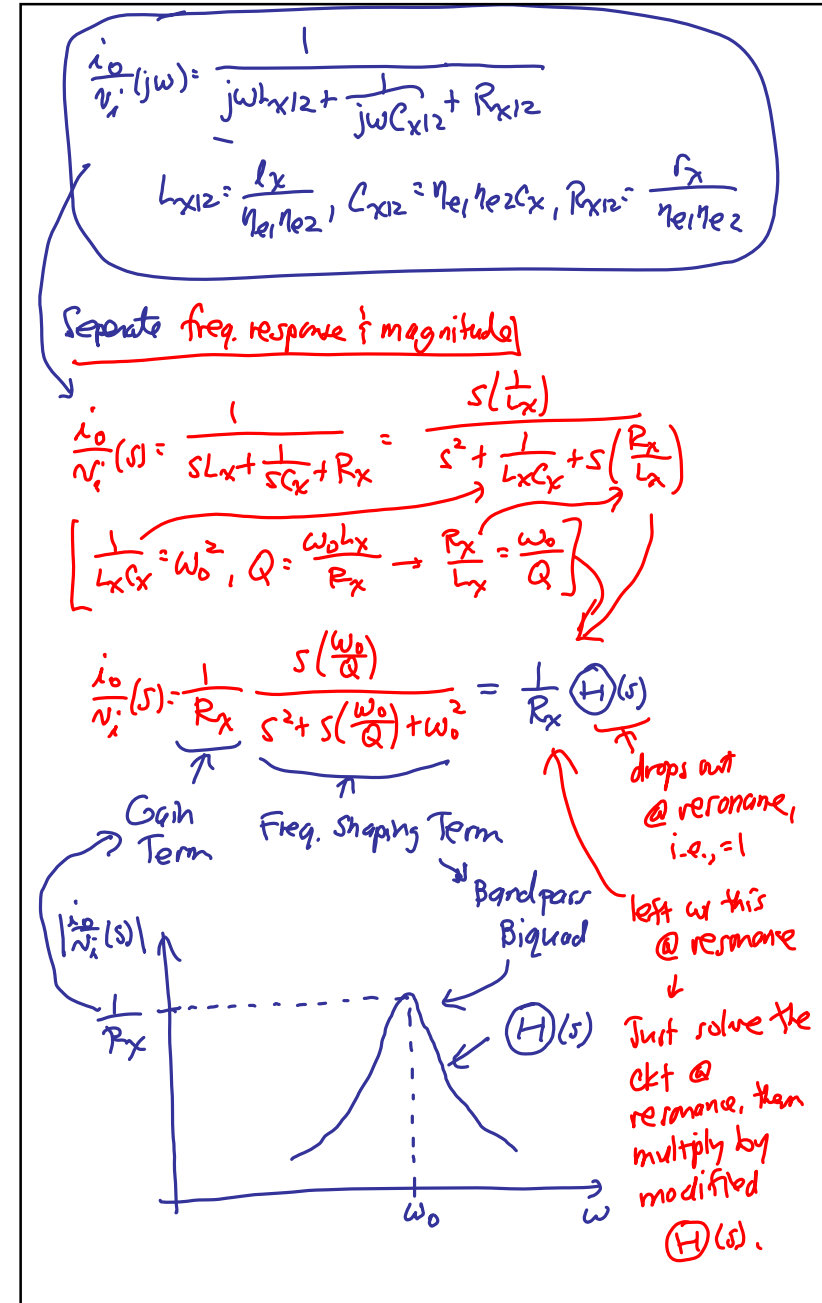 i₀/vᵢ (jω) = 1 / (jωLx12 + 1/(jωCx12) + Rx12)
Lx12 = lx/(ηe1ηe2), Cx12 = ηe1ηe2Cx, Rx12 = rx/(ηe1ηe2)
Separate freq. response & magnitude
i₀/vᵢ (s) = 1 / (sLx + 1/(sCx) + Rx) = s(1/Lx) / (s² + 1/(LxCx) + s(Rx/Lx))
[1/(LxCx) = ω₀², Q = ω₀Lx/Rx → Rx/Lx = ω₀/Q]
i₀/vᵢ (s) = 1/Rx · s(ω₀/Q) / (s² + s(ω₀/Q) + ω₀²) = 1/Rx Ⓗ(s)
Gain
Term
Freq. Shaping Term
Bandpass
Biquad
drops out
@ resonance,
i.e., =1
left w/ this
@ resonance
↓
Just solve the
ckt @
resonance, then
multiply by
modified
Ⓗ(s).
|i₀/vᵢ (s)|
1/Rx
Ⓗ(s)
ω₀
ω